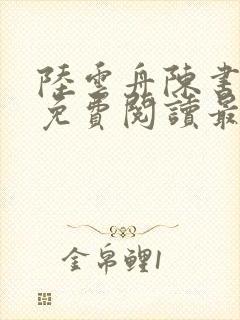 陸雲舟陳書
免費閱讀最
金帛鯉1